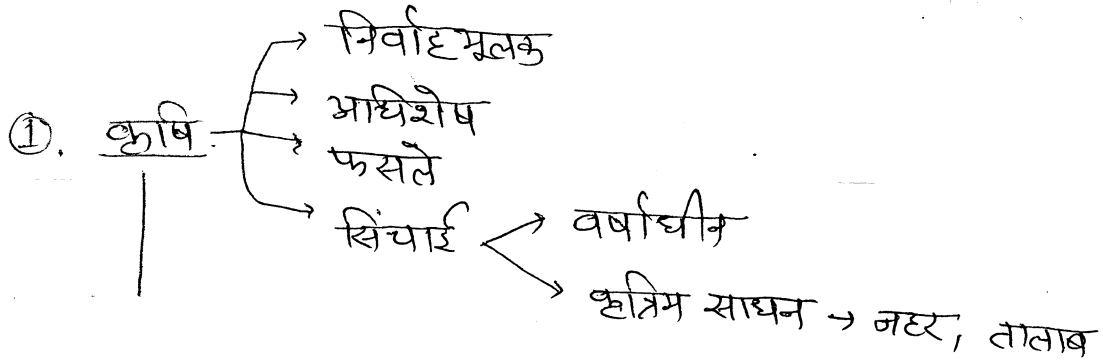 निर्वाहमूलक
①. कृषि
अधिशेष
फसले
सिंचाई
वर्षाधीन
कृत्रिम साधन → नहर, तालाब